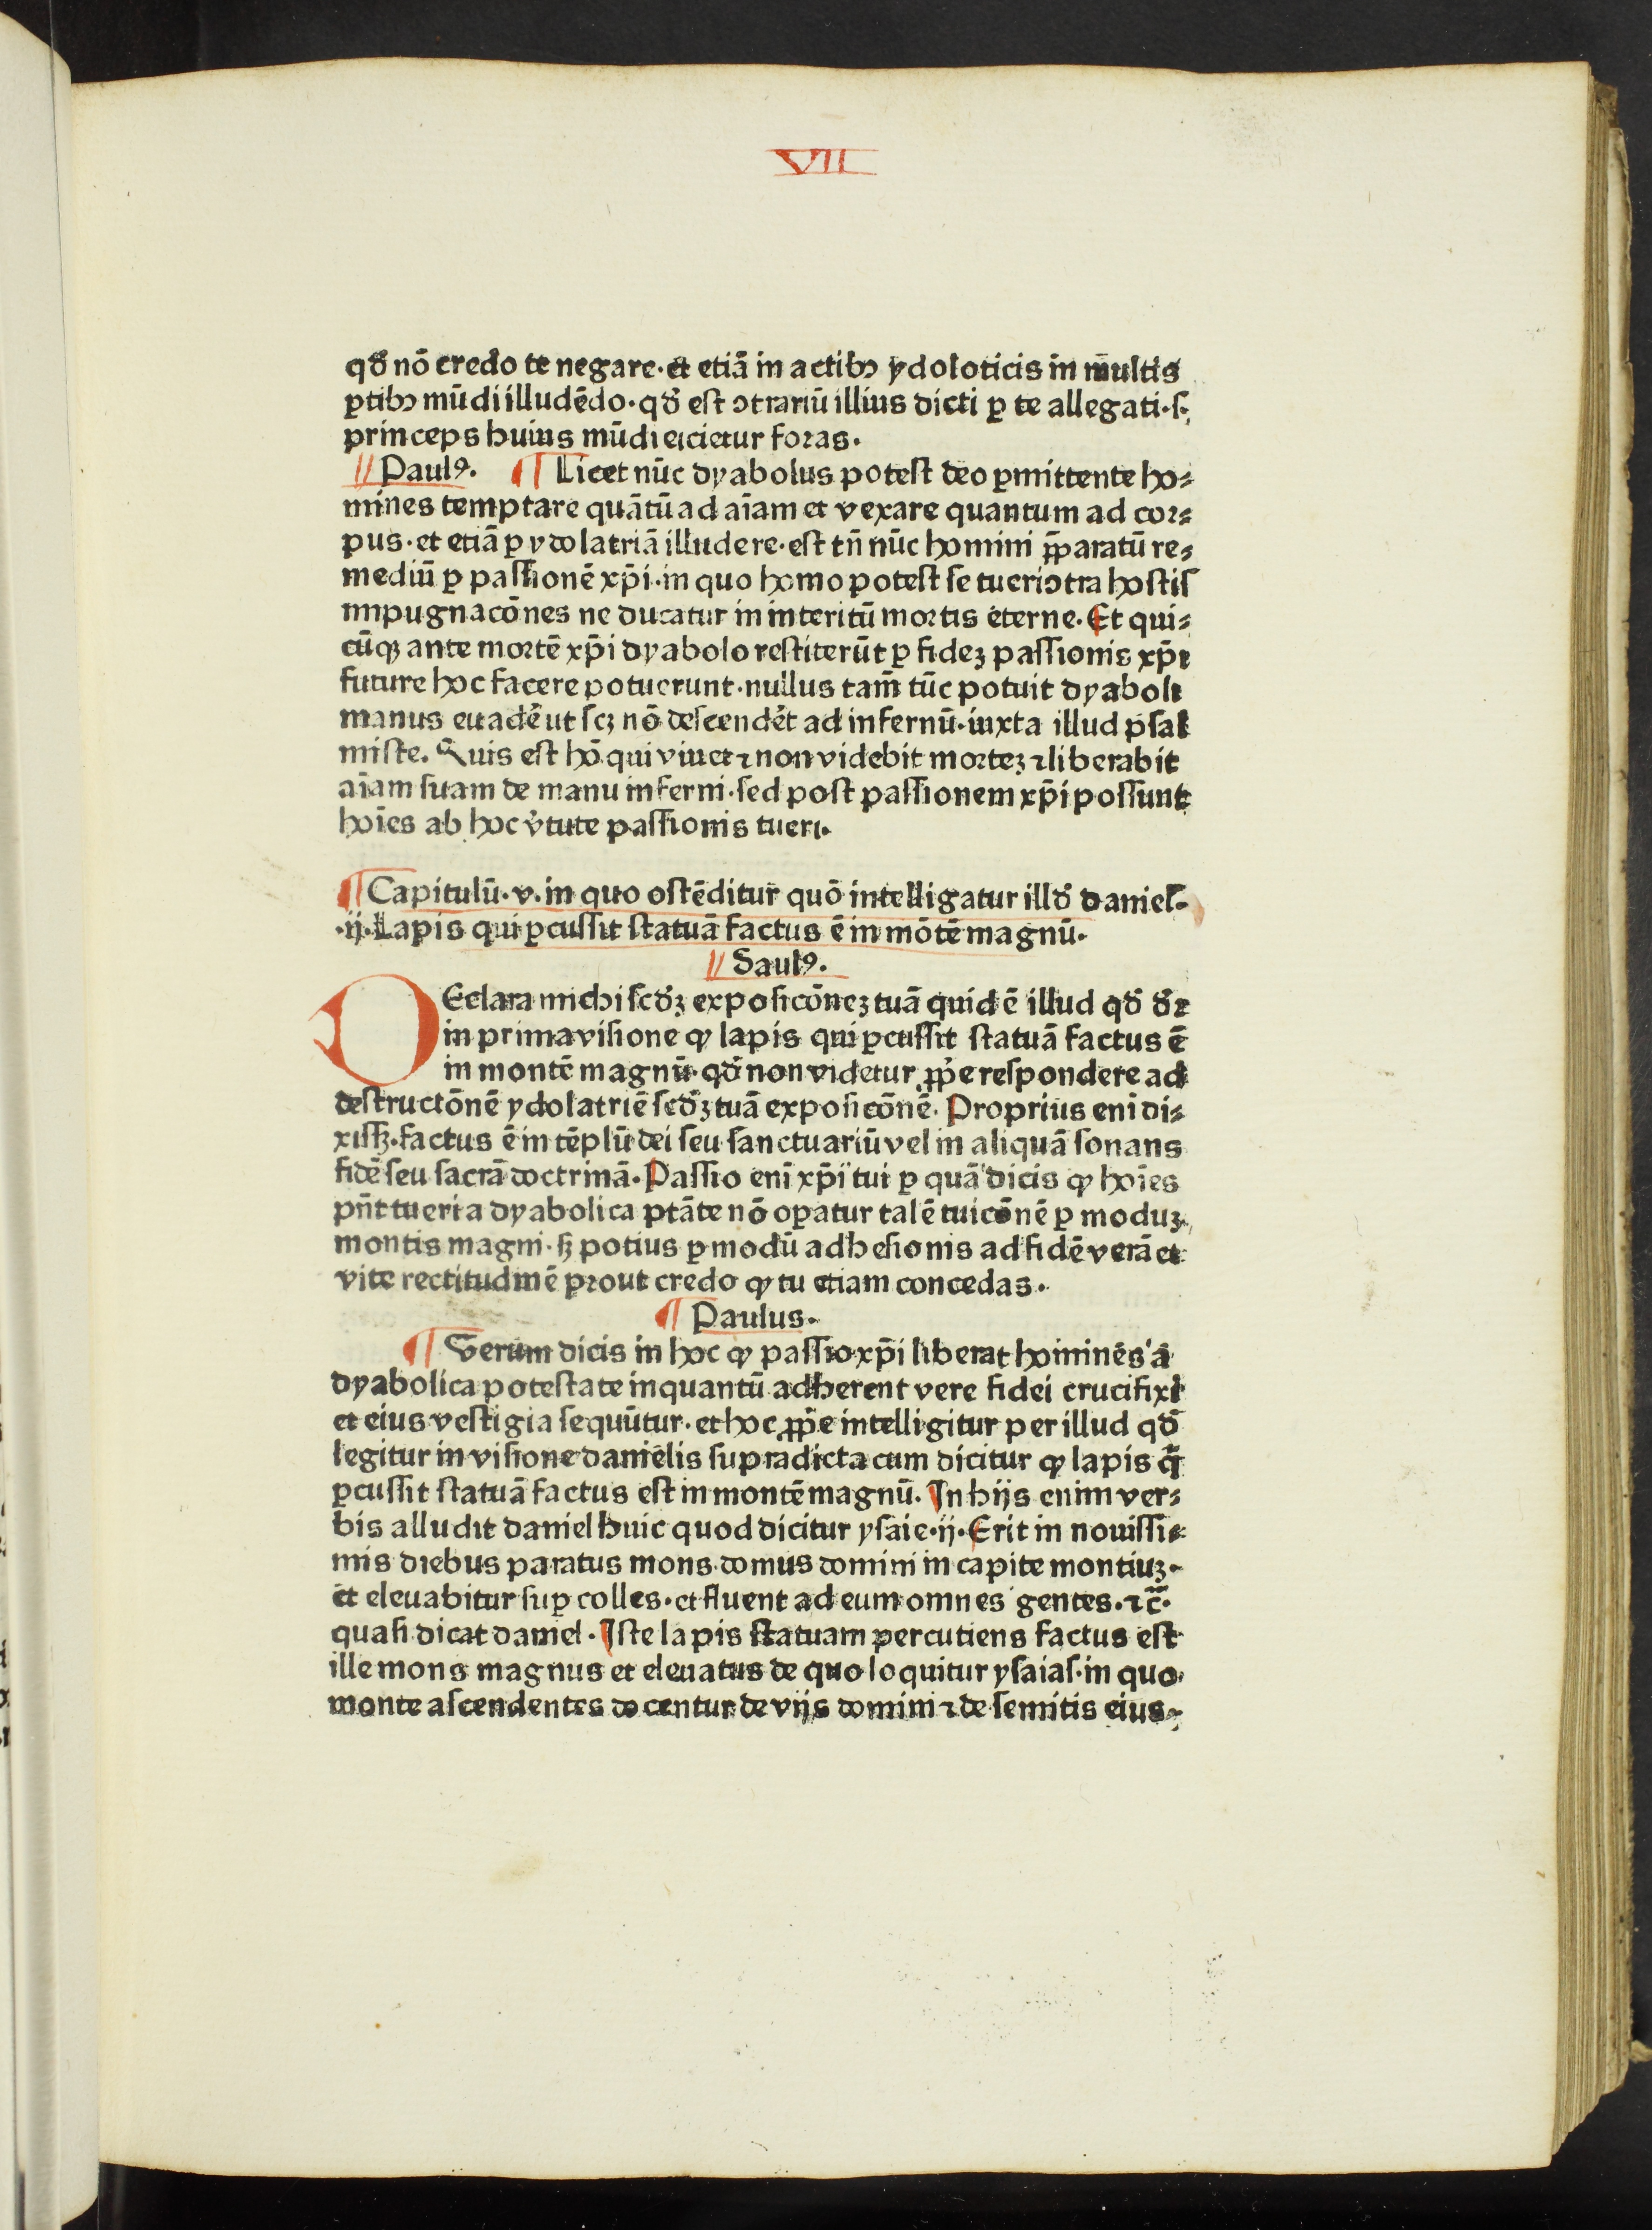 VII
qđ nō credo te negare·et etiā in actibꝫ ydoloticis in multis
ꝑtibꝫ mūdi illudēdo·qđ est ꝯtrariū illius dicti ꝑ te allegati·ſ·
princeps huius mūdi eicietur foras·
Paulꝰ. ¶ Licet nūc dyabolus potest deo ꝑmittente ho⸗
mines temptare quātū ad aīam et vexare quantum ad cor⸗
pus·et etiā ꝑ ydolatriā illudere·est tn̄ nūc homini p̄paratū re⸗
mediū ꝑ paſſionē xp̄i·in quo homo potest se tueri ꝯtra hostiſ
impugnacōnes ne ducatur in interitū mortis eterne. Et qui⸗
cūqꝫ ante mortē xp̄i dyabolo restiterūt ꝑ fideꝫ paſſionis xp̄i
future hoc facere potuerunt·nullus tam̄ tūc potuit dyaboli
manus euadēꝰ ut ſcꝫ nō deſcendēt ad infernū·iuxta illud pſal
miſte. Quis est hō qui viuet ⁊ non videbit morteꝫ ⁊ liberabit
aīam ſuam de manu inferni·ſed poſt paſſionem xp̄i poſſunt
hoīes ab hoc v̓tute paſſionis tueri·
¶ Capitulū·v·in quo oſtēditur quō intelligatur illđ danieľ·
·ij·Lapis qui ꝑcuſſit ſtatuā factus ē in mōtē magnū·
Saulꝰ.
DEclara michi ſcđꝫ expoſicōneꝫ tuā quid ē illud qđ đr
in prima viſione ꝙ lapis qui ꝑcuſſit ſtatuā factus ē
in montē magnū·qđ non videtur ꝓpͤe reſpondere ad
deſtructōnē ydolatrie ſcđꝫ tuā expoſicōnē. Proprius enī di⸗
xiſſꝫ·factus ē in tēplū dei ſeu ſanctuariū vel in aliquā ſonans
fidē ſeu ſacrā doctrinā. Paſſio enī xp̄i tui ꝑ quā dicis ꝙ hoīes
pn̄t tueri a dyabolica ptāte nō oꝑatur talē tuicōnē ꝑ moduꝫ
montis magni·ſꝫ potius ꝑ modū adheſionis ad fidē verā et
vite rectitudinē prout credo ꝙ tu etiam concedas·
¶ Paulus·
¶ Verum dicis in hoc ꝙ paſſio xp̄i liberat homines a
dyabolica poteſtate inquantū adherent vere fidei crucifixi
et eius veſtigia ſequūtur·et hoc ꝓpͤe intelligitur per illud qđ
legitur in viſione danielis ſupradicta cum dicitur ꝙ lapis q̄
ꝑcuſſit ſtatuā factus est in montē magnū. In hijs enim ver⸗
bis alludit daniel huic quod dicitur yſaie·ij·Erit in nouiſſi⸗
mis diebus paratus mons domus domini in capite montiuꝫ·
et eleuabitur ſuꝑ colles·et fluent ad eum omnes gentes·⁊c̄·
quaſi dicat daniel·Iſte lapis ſtatuam percutiens factus eſt
ille mons magnus et eleuatus de quo loquitur yſaiaſ·in quo
monte aſcendentes docentur de vijs domini ⁊ de ſemitis eius·